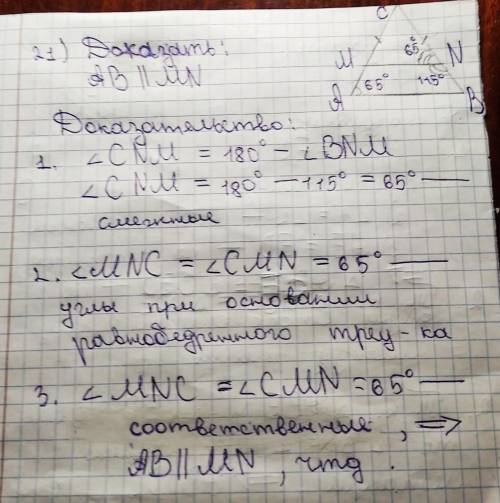 21) Доказать:
AB || MN
C
M
65°
N
A
65°
115°
B
Доказательство:
1. ∠CNM = 180° – ∠BNM
∠CNM = 180° – 115° = 65° —
смежные
2. ∠MNC = ∠CMN = 65° —
углы при основании
равнобедренного треу-ка
3. ∠MNC = ∠CMN = 65° —
соответственные, ⟹
AB || MN, чтд.